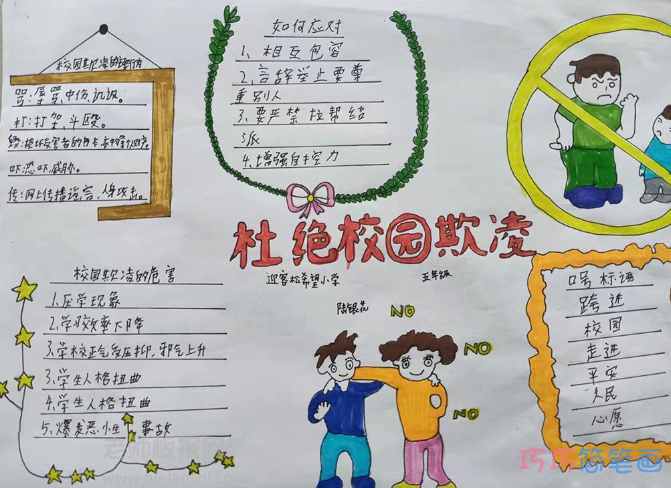 校园欺凌的
骂:辱骂,中伤,讥讽。
打:打架斗殴。
吓:恐吓威胁。
传:网上传播谣言,人身攻击。
如何应对
1、相互包容
2、言辞举止要尊
重别人
3、要严禁拉帮结
派
4、增强自控力
杜绝校园欺凌
迎客松希望小学
五年级
陆银花
校园欺凌的危害
1.厌学现象
2.学习效率下降
3.学校正气受压抑.邪气上升
3.学生人格扭曲
4.学生人格扭曲
5、爆发恶小生 事故
NO
NO
NO
口号标语
跨进
校园
走进
平安
人民
心愿
老师板报网
巧巧简笔画